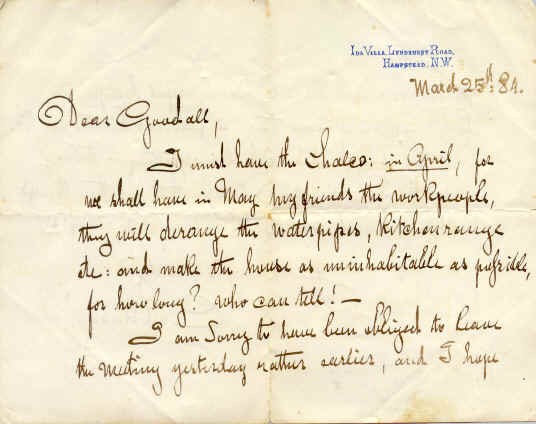 Ida Villa, Lyndhurst Road,
Hampstead, N.W.
March 25th: 84.
Dear Goodall,
I must have the : in April, for
we shall have in May my friends the workpeople,
they will derange the waterpipes, kitchen range
etc: and make the house as uninhabitable as possible,
for how long? who can tell! —
I am Sorry to have been obliged to leave
the Meeting yesterday rather earlier, and I hope